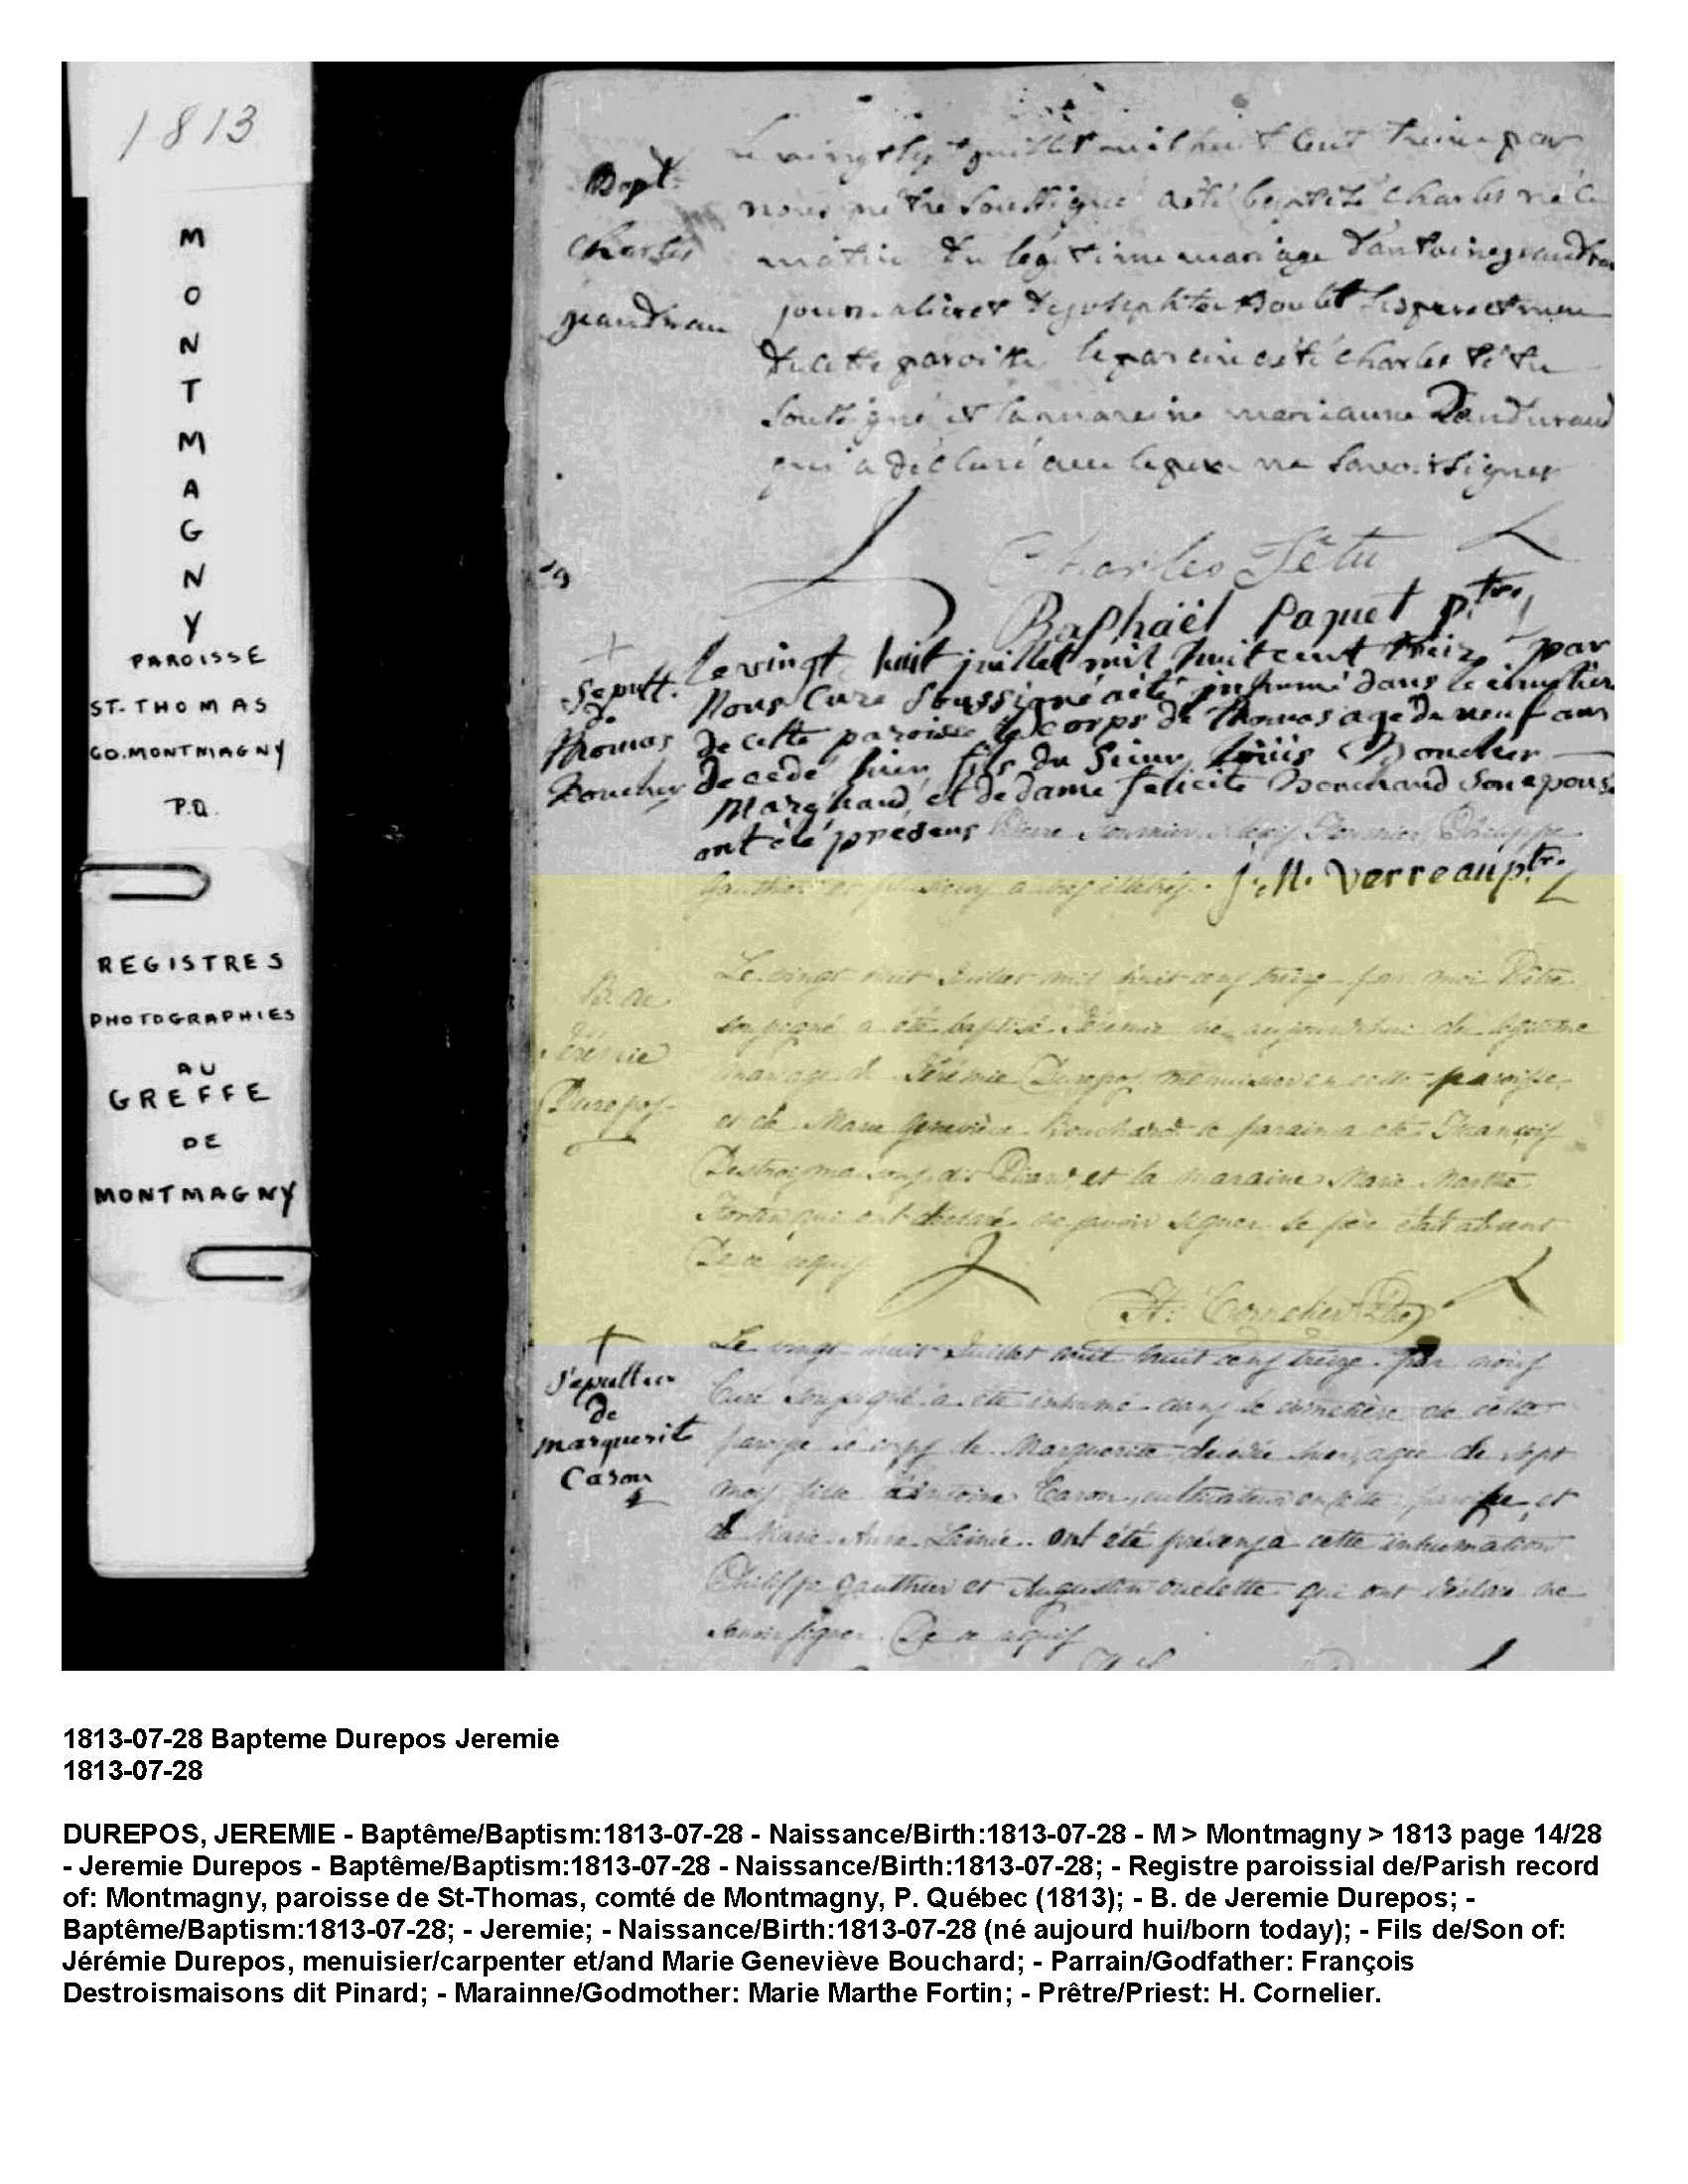 1813
MONTMAGNY
PAROISSE
ST. THOMAS
CO. MONTMAGNY
P.Q.
REGISTRES
PHOTOGRAPHIES
AU
GREFFE
DE
MONTMAGNY
Bapt.
Charles
jeandreau
Le vingt sept juillet mil huit cent treize par
nous prêtre soussigné a été baptisé Charles né ce
matin du légitime mariage d'antoine jeandreau
journalier et de josephte Boulet ses pere et mere
de cette paroisse le parain a été Charles Têtu
soussigné et la maraine marianne Dandurand
qui a déclaré avec le pere ne savoir signer
Charles Têtu
Raphaël Paquet ptre
Sepult.
de
Thomas
Boucher
le vingt huit juillet mil huit cent treize par
Nous Curé Soussigné a été inhumé dans le cimetiere
de cette paroisse le corps de Thomas agé de neuf ans
decedé hier fils du Sieur Loüis Boucher
Marchand, et de dame felicité Bouchard son epouse
ont été présens Pierre Fournier, Alexis Fournier, Philippe
Gauthier et plusieurs autres illétrés. J. M. Verreau ptr.
B. de
Jérémie
Durepos
Le vingt huit Juillet mil huit cens treize par moi Prêtre
soussigné a été baptisé Jérémie né aujourdhui du légitime
mariage de Jérémie Durepos menuisier en cette paroisse,
et de Marie Geneviève Bouchard le parain a été François
Destroismaisons dit Picard et la maraine Marie Marthe
Fortin qui ont déclaré ne savoir signer le père était absent
De ce requis
H. Cornelier Ptre
Sépulture
de
marguerite
Caron
Le vingt huit Juillet mil huit cens treize par nous
Curé soussigné a été inhumé dans le cimetière de cette
paroisse le corps de Marguerite décédée hier, agée de sept
mois fille d'Antoine Caron, cultivateur en cette paroisse, et
de Marie Anne Lainé. ont été présens a cette inhumation
Philippe Gauthier et Augustin ouelette qui ont déclaré ne
savoir signer. De ce requis
1813-07-28 Bapteme Durepos Jeremie
1813-07-28
DUREPOS, JEREMIE - Baptême/Baptism:1813-07-28 - Naissance/Birth:1813-07-28 - M > Montmagny > 1813 page 14/28
- Jeremie Durepos - Baptême/Baptism:1813-07-28 - Naissance/Birth:1813-07-28; - Registre paroissial de/Parish record
of: Montmagny, paroisse de St-Thomas, comté de Montmagny, P. Québec (1813); - B. de Jeremie Durepos; -
Baptême/Baptism:1813-07-28; - Jeremie; - Naissance/Birth:1813-07-28 (né aujourd hui/born today); - Fils de/Son of:
Jérémie Durepos, menuisier/carpenter et/and Marie Geneviève Bouchard; - Parrain/Godfather: François
Destroismaisons dit Pinard; - Marainne/Godmother: Marie Marthe Fortin; - Prêtre/Priest: H. Cornelier.